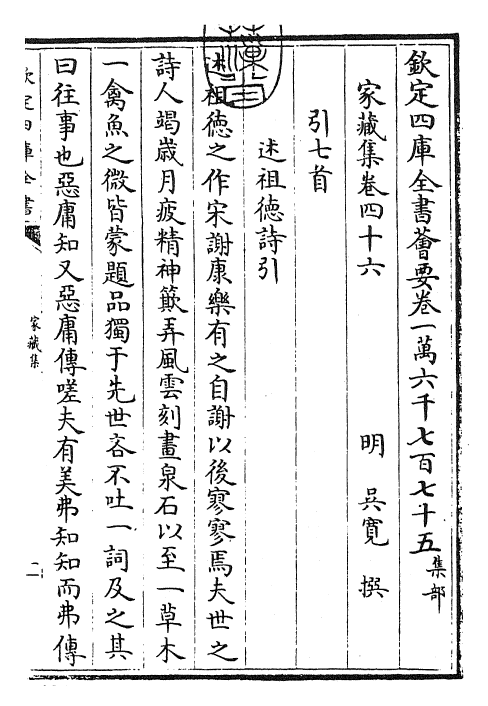 欽定四庫全書薈要卷一萬六千七百七十五集部
家藏集卷四十六 明 吳寬 撰
引七首
述祖德詩引
述祖德之作宋謝康樂有之自謝以後寥寥焉夫世之
詩人竭歲月疲精神簸弄風雲刻畫泉石以至一草木
一禽魚之微皆蒙題品獨于先世吝不吐一詞及之其
曰往事也惡庸知又惡庸傳嗟夫有美弗知知而弗傳
欽定四庫全書
家藏集